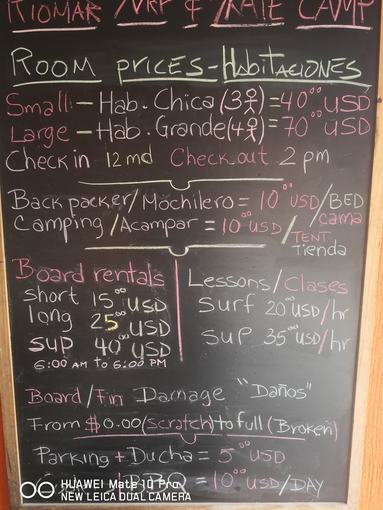 RIOMAR SURF & SKATE CAMP
ROOM PRICES-HabitacioNES
Small - Hab. Chica (3) = 40⁰⁰ USD
Large - Hab. Grande (4) = 70⁰⁰ USD
Check in 12 md Check out 2 pm
Back packer/Mochilero = 10⁰⁰ USD/BED
cama
Camping/Acampar = 10⁰⁰ USD/TENT
Tienda
Board rentals
short 15⁰⁰ USD
long 25⁰⁰ USD
SUP 40⁰⁰ USD
6:00 AM to 6:00 PM
Lessons/Clases
Surf 20⁰⁰ USD/hr
SUP 35⁰⁰ USD/hr
Board/Fin Damage "Daños"
From $0.00 (scratch) to full (Broken)
Parking + Ducha = 5⁰⁰ USD
BBQ = 10⁰⁰ USD/DAY
HUAWEI Mate 10 Pro
NEW LEICA DUAL CAMERA